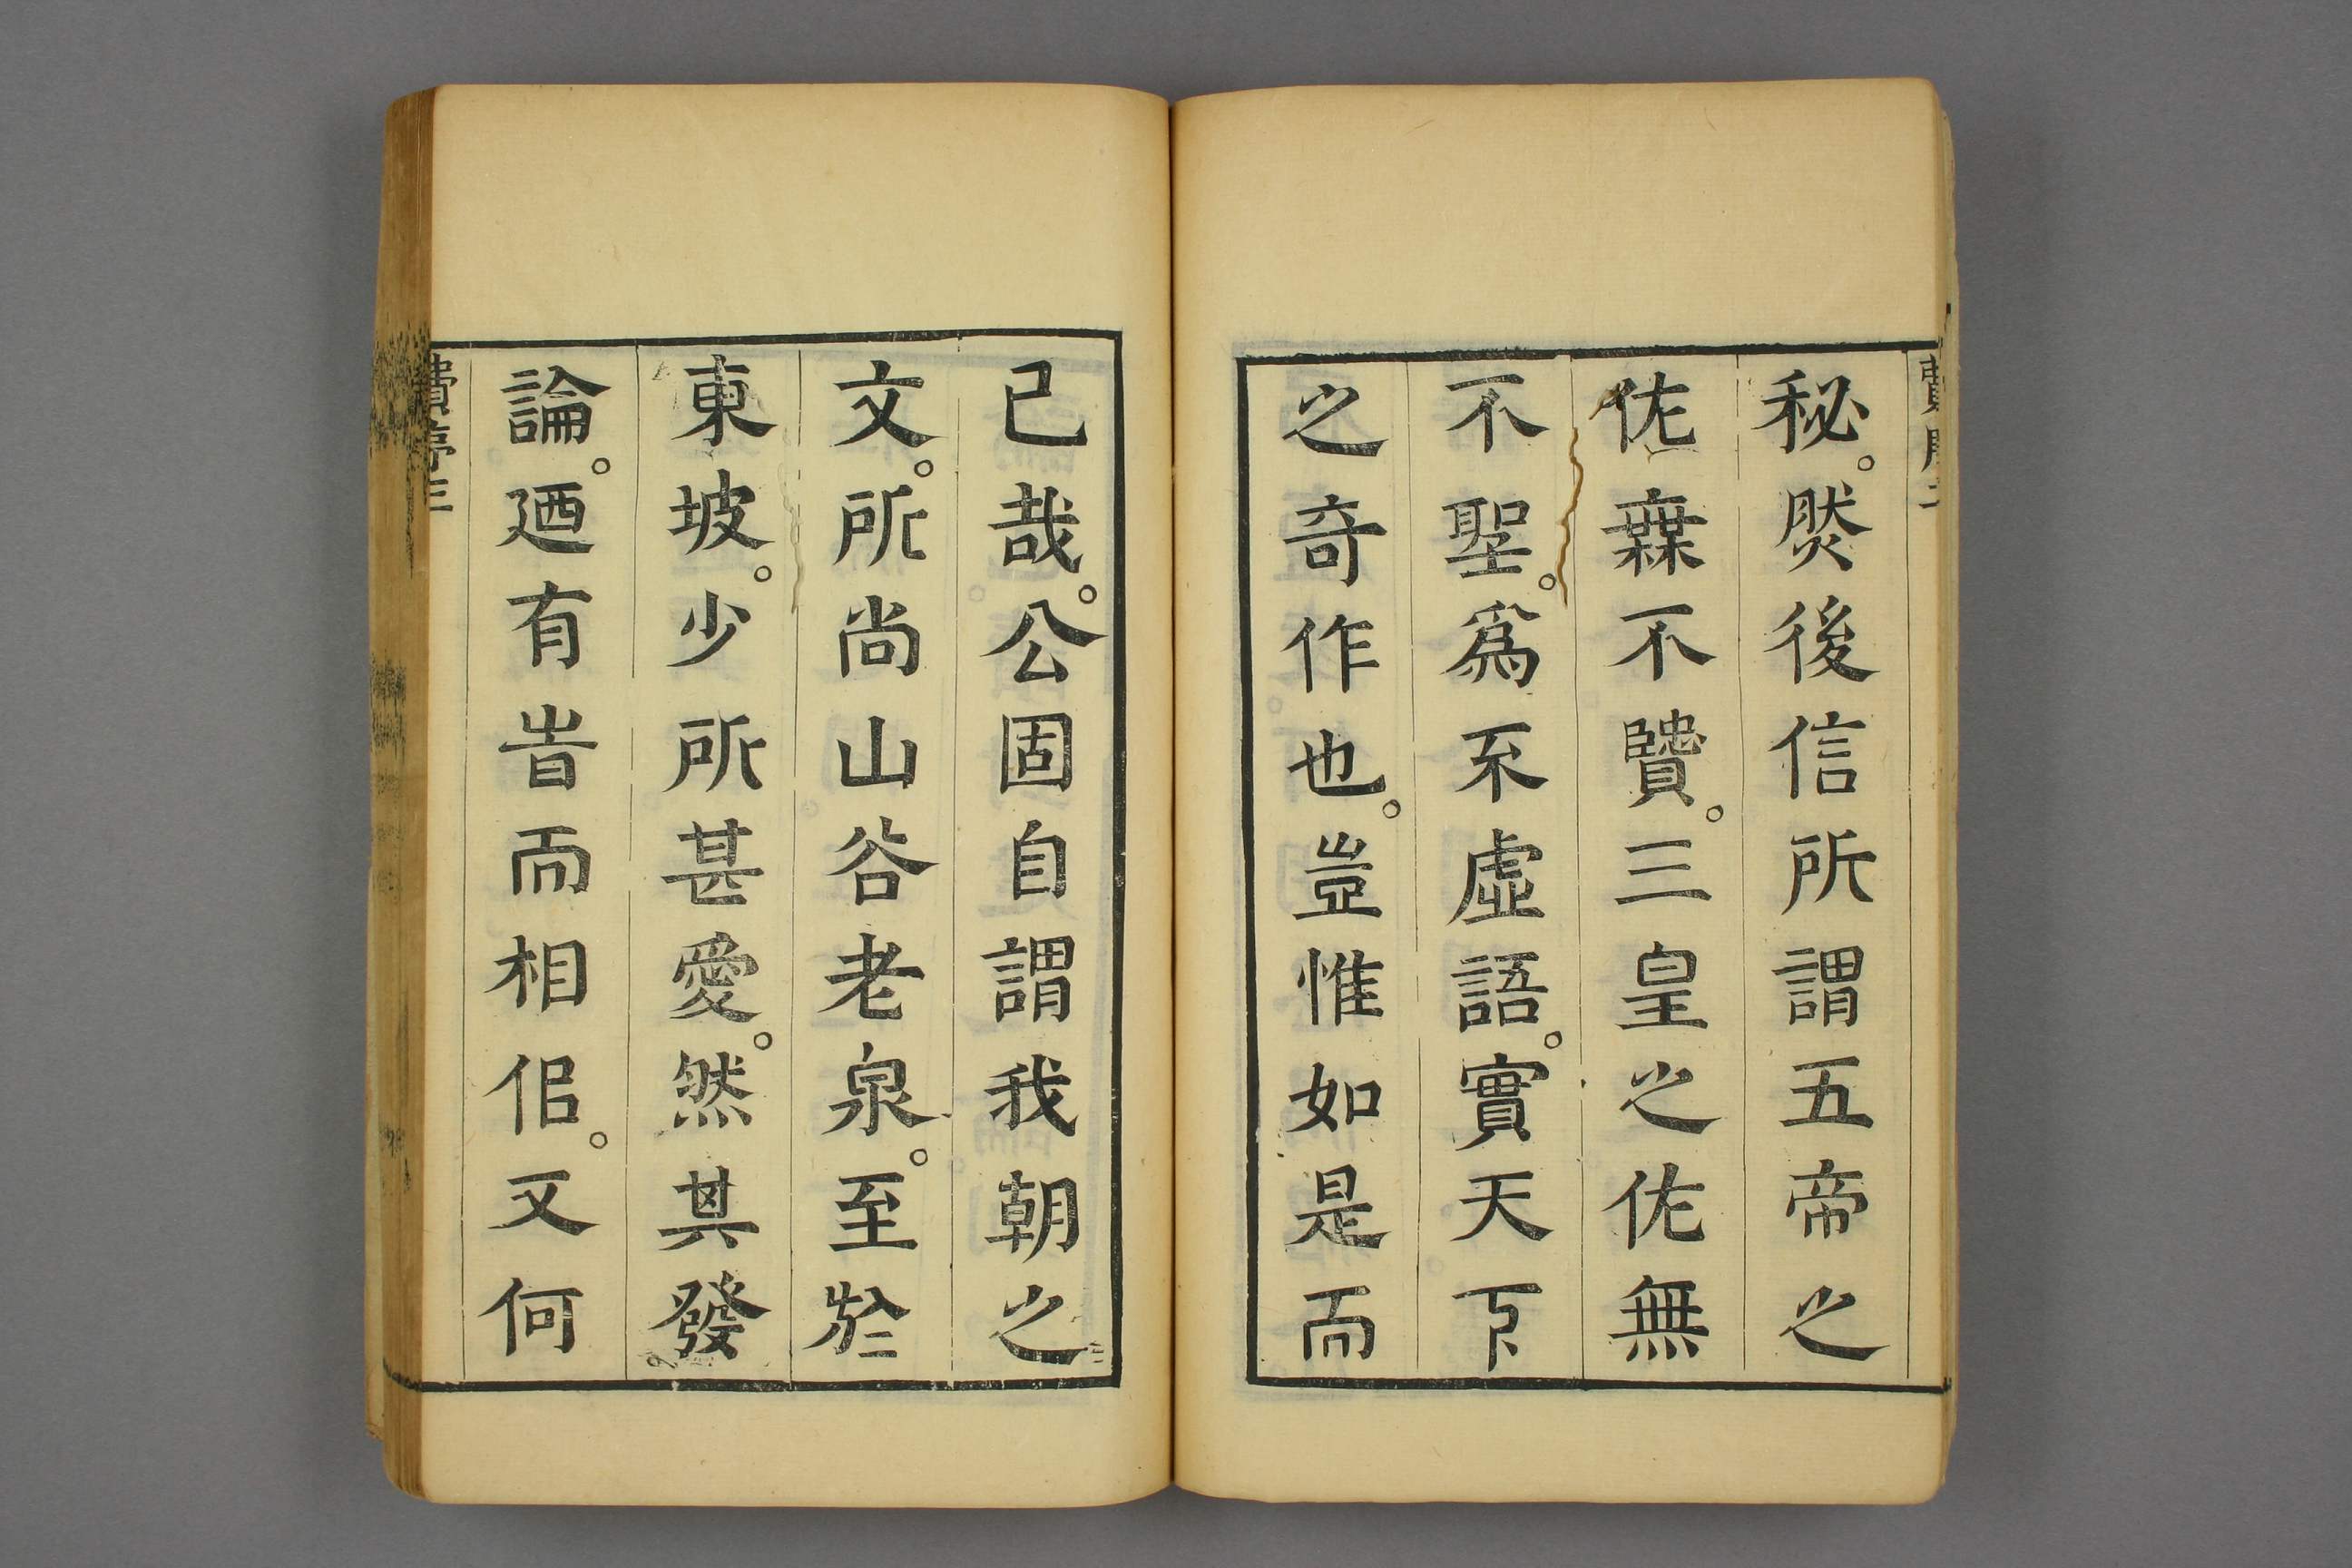 秘。然後信所謂五帝之
佐無不贒。三皇之佐無
不聖。爲不虛語。實天下
之奇作也。豈惟如是而
已哉。公固自謂我朝之
文。所尚山谷老泉。至於
東坡。少所甚愛。然其發
論。廼有旹而相佀。又何